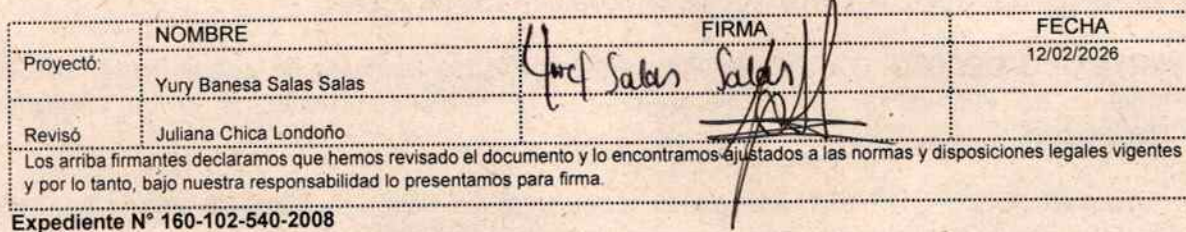 NOMBRE FIRMA FECHA
Proyectó: 12/02/2026
Yury Banesa Salas Salas Salas Salas
Revisó Juliana Chica Londoño
Los arriba firmantes declaramos que hemos revisado el documento y lo encontramos ajustados a las normas y disposiciones legales vigentes
y por lo tanto, bajo nuestra responsabilidad lo presentamos para firma.
Expediente N° 160-102-540-2008